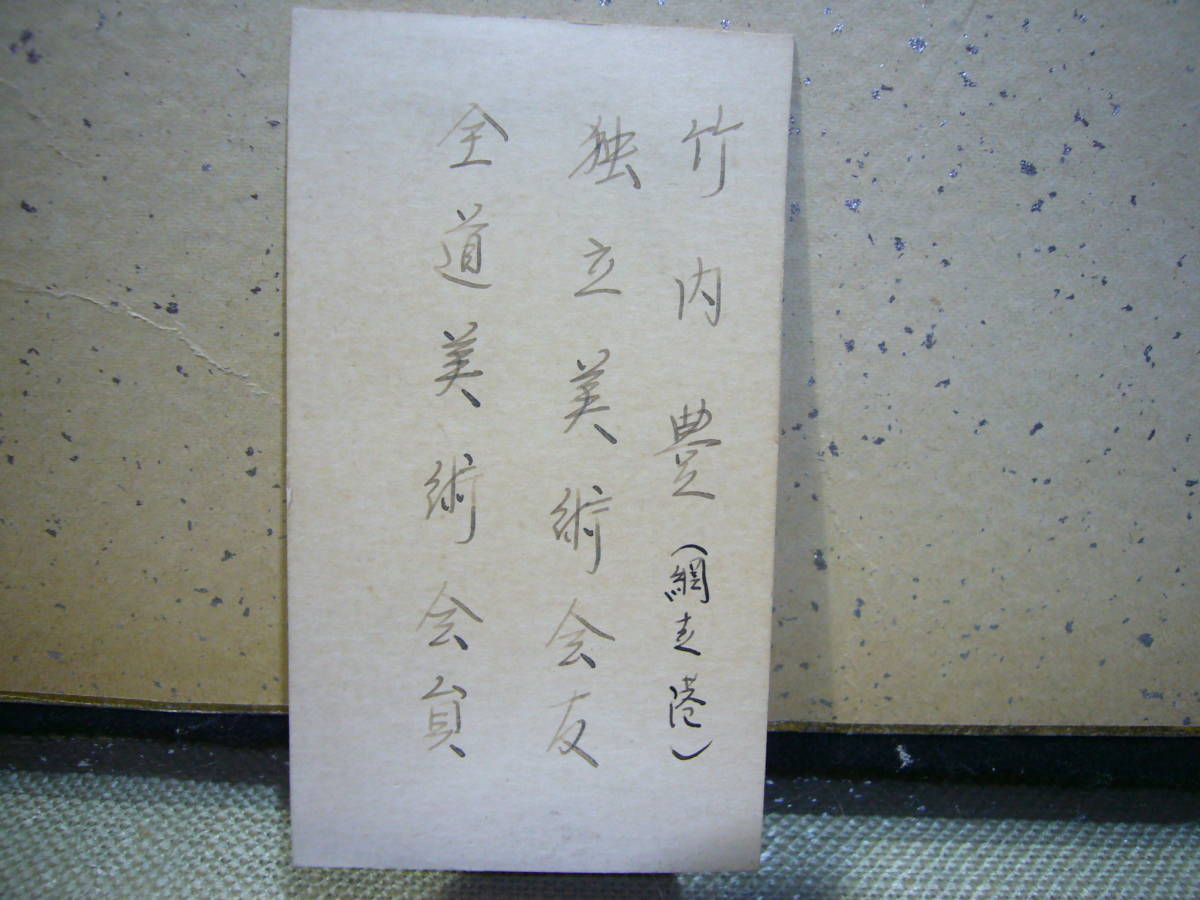 竹内豊（網走港）
独立美術会友
全道美術会員